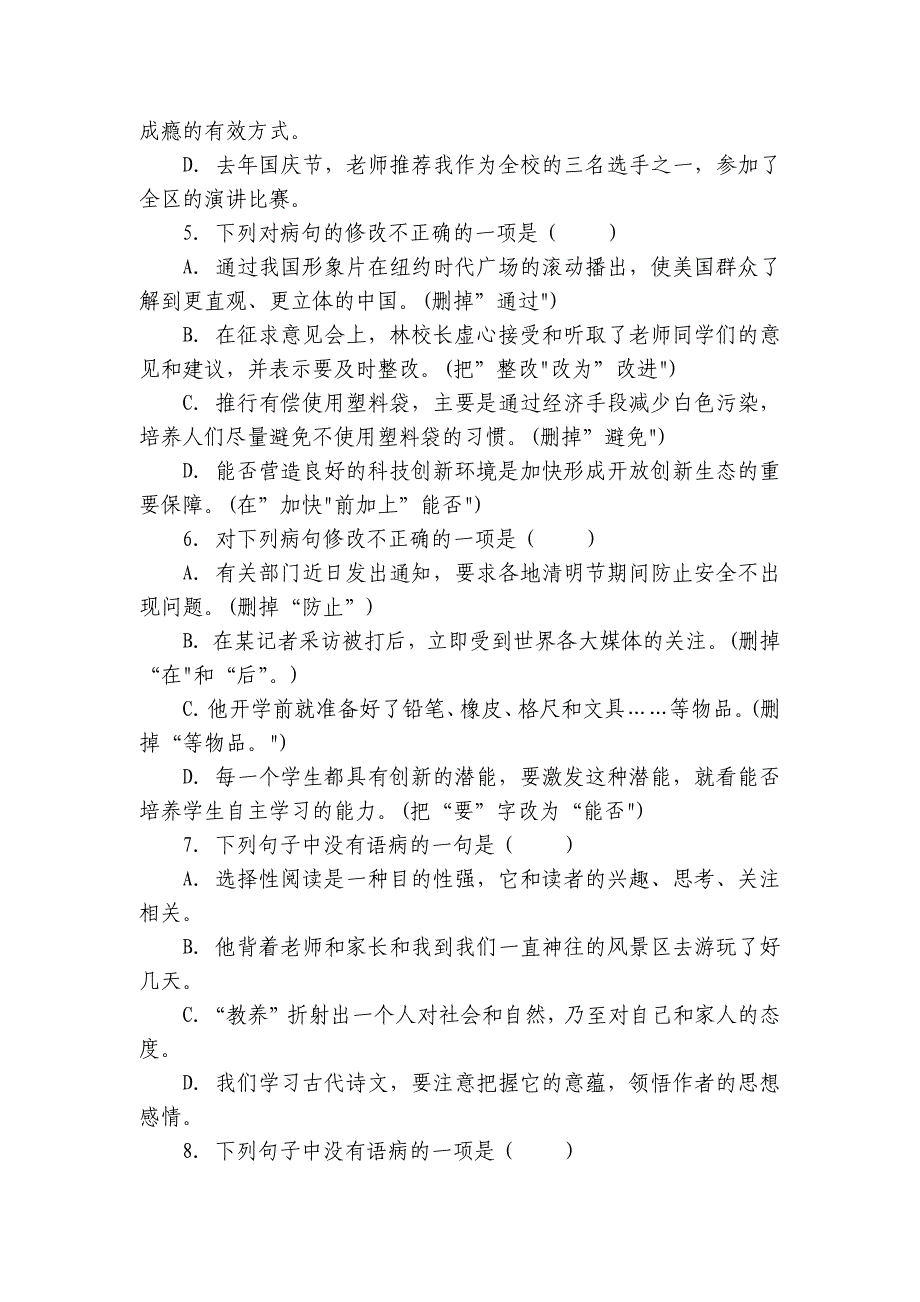 成瘾的有效方式。
D. 去年国庆节，老师推荐我作为全校的三名选手之一，参加了
全区的演讲比赛。
5. 下列对病句的修改不正确的一项是（　　）
A. 通过我国形象片在纽约时代广场的滚动播出，使美国群众了
解到更直观、更立体的中国。(删掉”通过")
B. 在征求意见会上，林校长虚心接受和听取了老师同学们的意
见和建议，并表示要及时整改。(把”整改"改为”改进")
C. 推行有偿使用塑料袋，主要是通过经济手段减少白色污染，
培养人们尽量避免不使用塑料袋的习惯。(删掉”避免")
D. 能否营造良好的科技创新环境是加快形成开放创新生态的重
要保障。(在”加快"前加上”能否")
6. 对下列病句修改不正确的一项是（　　）
A. 有关部门近日发出通知，要求各地清明节期间防止安全不出
现问题。(删掉“防止”)
B. 在某记者采访被打后，立即受到世界各大媒体的关注。(删掉
“在"和“后”。)
C. 他开学前就准备好了铅笔、橡皮、格尺和文具……等物品。(删
掉“等物品。")
D. 每一个学生都具有创新的潜能，要激发这种潜能，就看能否
培养学生自主学习的能力。(把“要”字改为“能否")
7. 下列句子中没有语病的一句是（　　）
A. 选择性阅读是一种目的性强，它和读者的兴趣、思考、关注
相关。
B. 他背着老师和家长和我到我们一直神往的风景区去游玩了好
几天。
C. “教养”折射出一个人对社会和自然，乃至对自己和家人的态
度。
D. 我们学习古代诗文，要注意把握它的意蕴，领悟作者的思想
感情。
8. 下列句子中没有语病的一项是（　　）